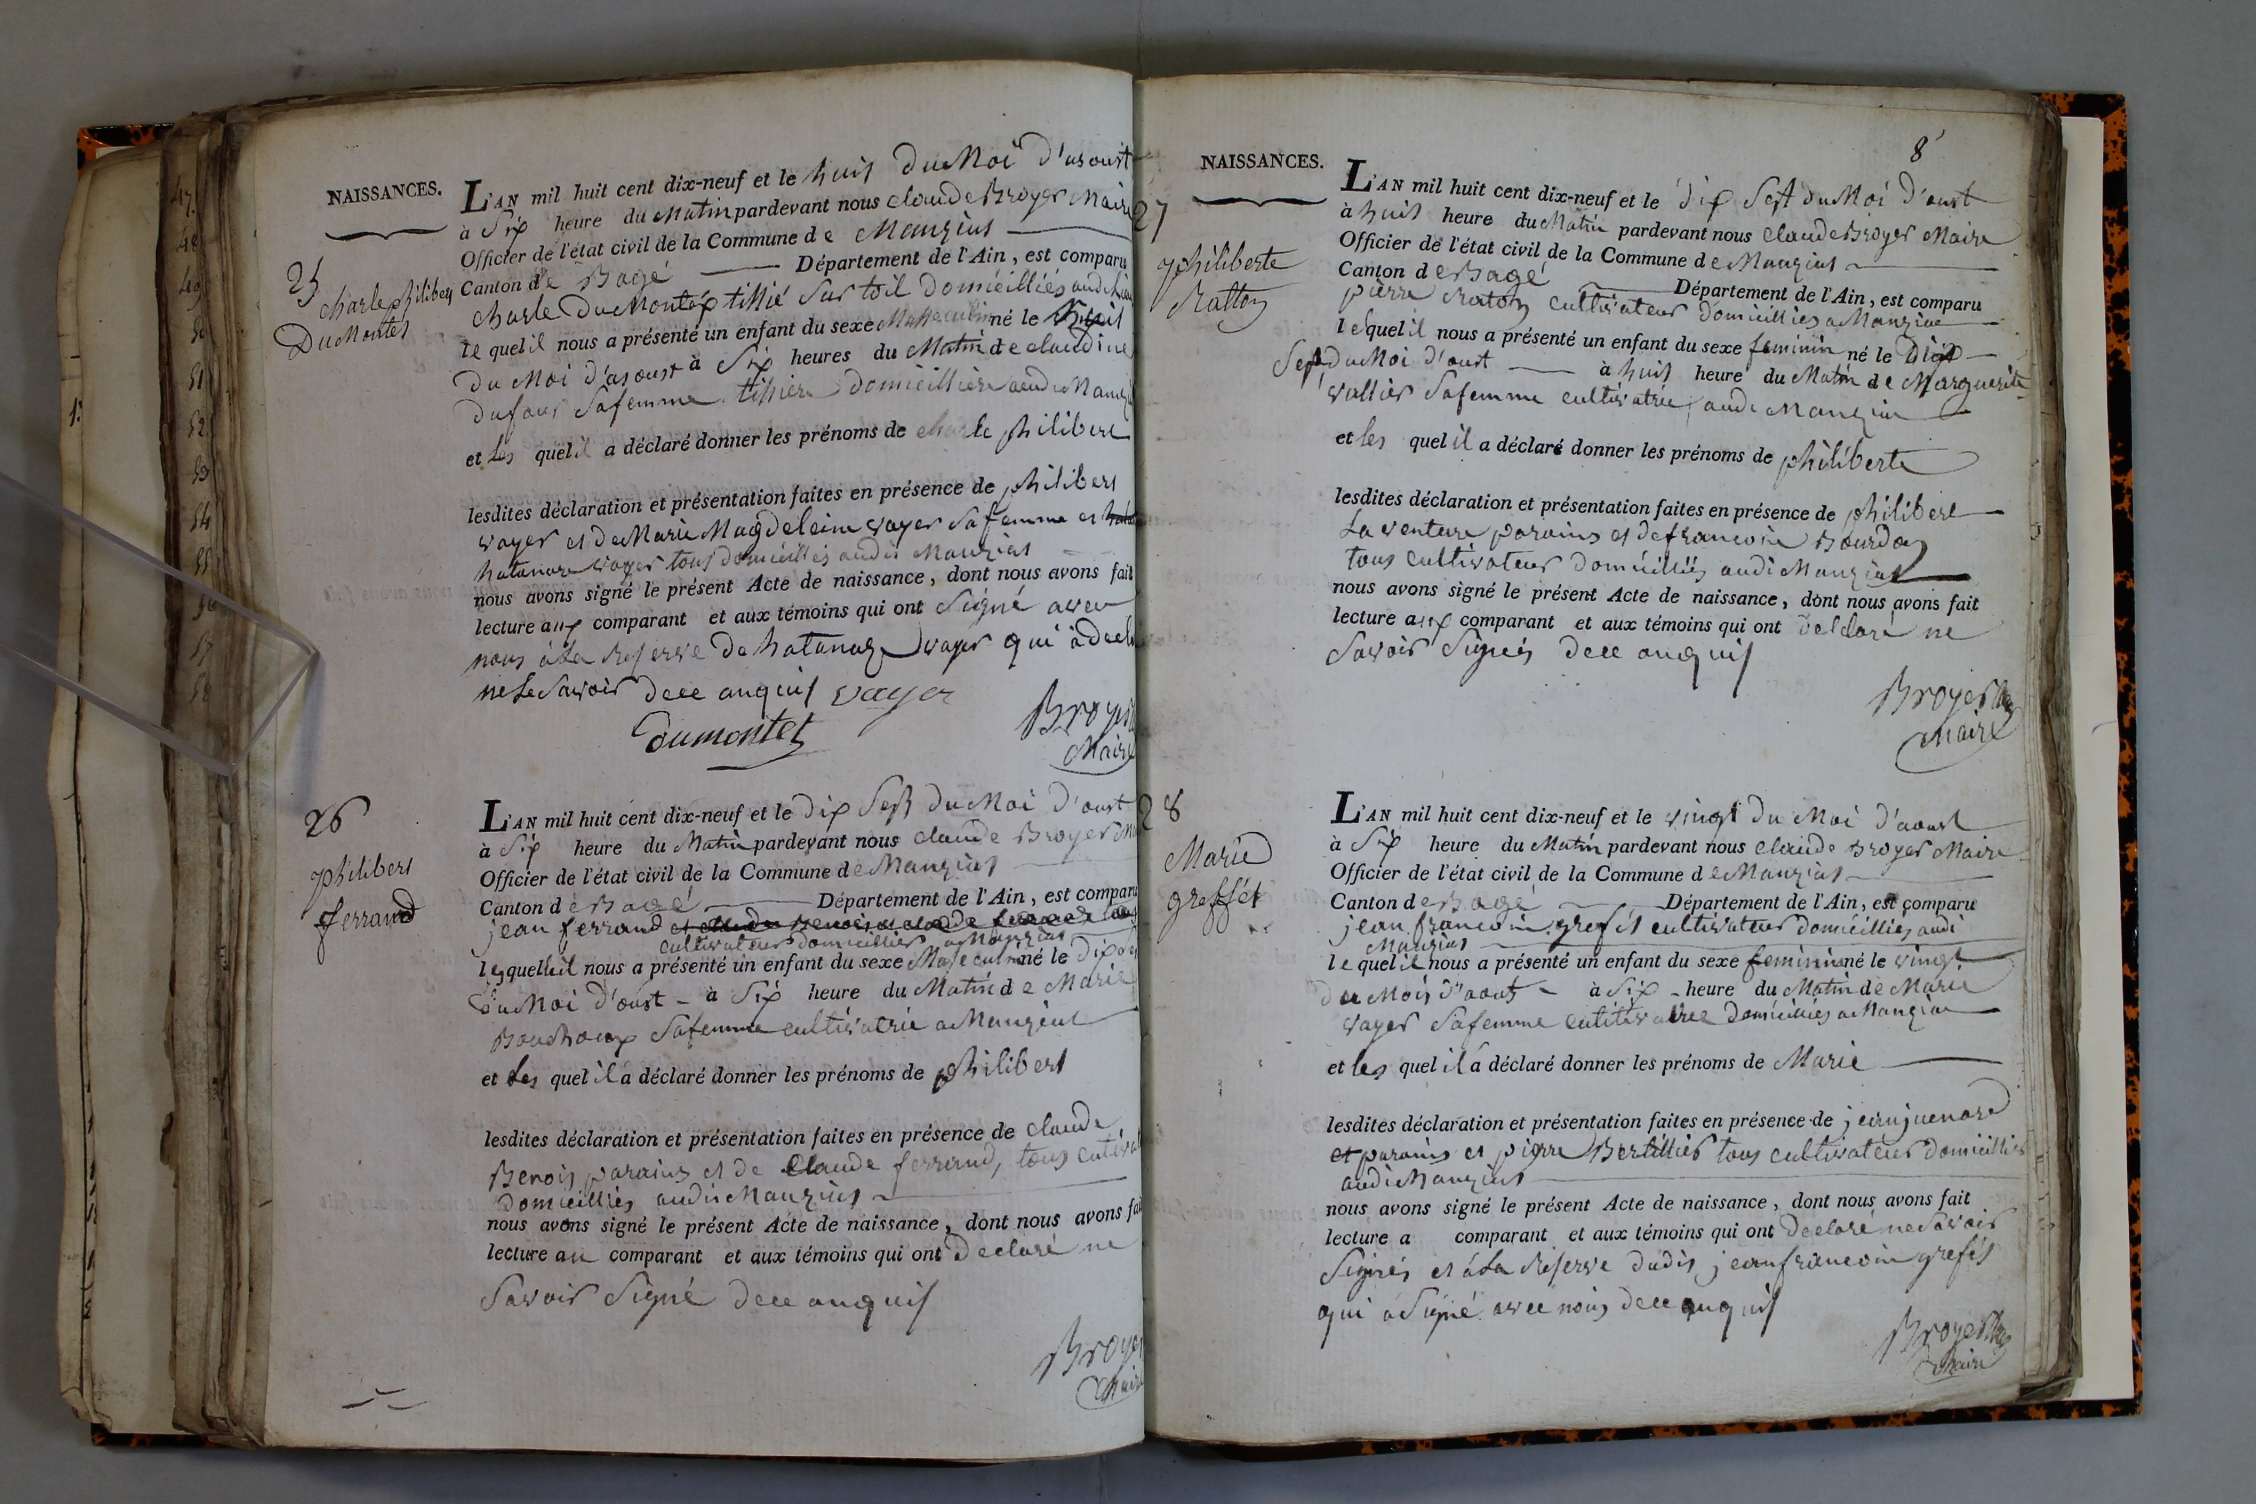 NAISSANCES.
25
charle philibert
DuMontet
L'AN mil huit cent dix-neuf et le huit du Moi d'asoust
à Six heure du Matin pardevant nous claude Broyer Maire
Officier de l'état civil de la Commune de Manziat
Canton de Bagé Département de l'Ain, est comparu
charle DuMontet tissié Sur toil domicilliés audi
le quel il nous a présenté un enfant du sexe Masculin né le huit
du Moi d'asoust à Six heures du Matin de claudine
dufour Safemme tissiere domicilliere audi
et Les quel il a déclaré donner les prénoms de charle philibert
lesdites déclaration et présentation faites en présence de philibert
vayer et de Marie Magdeleine vayer Safemme et
vayer tous domicilliés audit Manziat
nous avons signé le présent Acte de naissance, dont nous avons fait
lecture aux comparant et aux témoins qui ont Signé avec
nous à La Reserve de vayer qui à
ne Le Savoir dece anquis vayer
Dumontet
Broyer
Maire
26
philibert
ferrand
L'AN mil huit cent dix-neuf et le dix Sept du Moi d'oust
à Six heure du Matin pardevant nous claude Broyer
Officier de l'état civil de la Commune de Manziat
Canton de Bagé Département de l'Ain, est comparu
jean ferrand
cultivateur domicillier a Manziat
lesquel il nous a présenté un enfant du sexe Masculin né le
du Moi d'oust - à Six heure du Matin de Marie
Bouchoux Safemme cultivatrice a Manziat
et Les quel il a déclaré donner les prénoms de philibert
lesdites déclaration et présentation faites en présence de claude
Benois parains et de Claude ferrand, tous
domicilliés audit Manziat
nous avons signé le présent Acte de naissance, dont nous avons fait
lecture au comparant et aux témoins qui ont declaré ne
Savoir Signé dece anquis
Broyer
Maire
8
NAISSANCES.
27
philiberte
Ratton
L'AN mil huit cent dix-neuf et le dix Sept du Moi d'oust
à huit heure du Matin pardevant nous claude Broyer Maire
Officier de l'état civil de la Commune de Manziat
Canton de Bagé Département de l'Ain, est comparu
pierre Raton cultivateur domicilliés a Manziat
lequel il nous a présenté un enfant du sexe feminin né le Dix
Sept du Moi d'oust à huit heure du Matin de Marguerite
vallier Safemme cultivatrice audi Manziat
et les quel il a déclaré donner les prénoms de philiberte
lesdites déclaration et présentation faites en présence de philibert
La venture parains et de francoise Bourdon
tous cultivateur domicilliés audi Manziat
nous avons signé le présent Acte de naissance, dont nous avons fait
lecture aux comparant et aux témoins qui ont declaré ne
Savoir Signés dece anquis
Broyer
Maire
28
Marie
greffet
L'AN mil huit cent dix-neuf et le vingt du Moi d'aoust
à Six heure du Matin pardevant nous claude Broyer Maire
Officier de l'état civil de la Commune de Manziat
Canton de Bagé Département de l'Ain, est comparu
jean francoin grefet cultivateur domicilliés audi
Manziat
le quel il nous a présenté un enfant du sexe feminin né le vingt
du Mois d'aout - à Six - heure du Matin de Marie
vayer Safemme cultitivatrice domicilliés a Manziat
et les quel il a déclaré donner les prénoms de Marie
lesdites déclaration et présentation faites en présence de jean juenard
et parains et pierre Bertillier tous cultivateur domicilliés
audi Manziat
nous avons signé le présent Acte de naissance, dont nous avons fait
lecture a comparant et aux témoins qui ont declaré ne Savoir
Signés et à La Reserve dudis jean francoin grefet
qui a Signé avec nous dece anquis
Broyer
Maire
47.
48
49
50
51
52
53
54
55
56
57
58